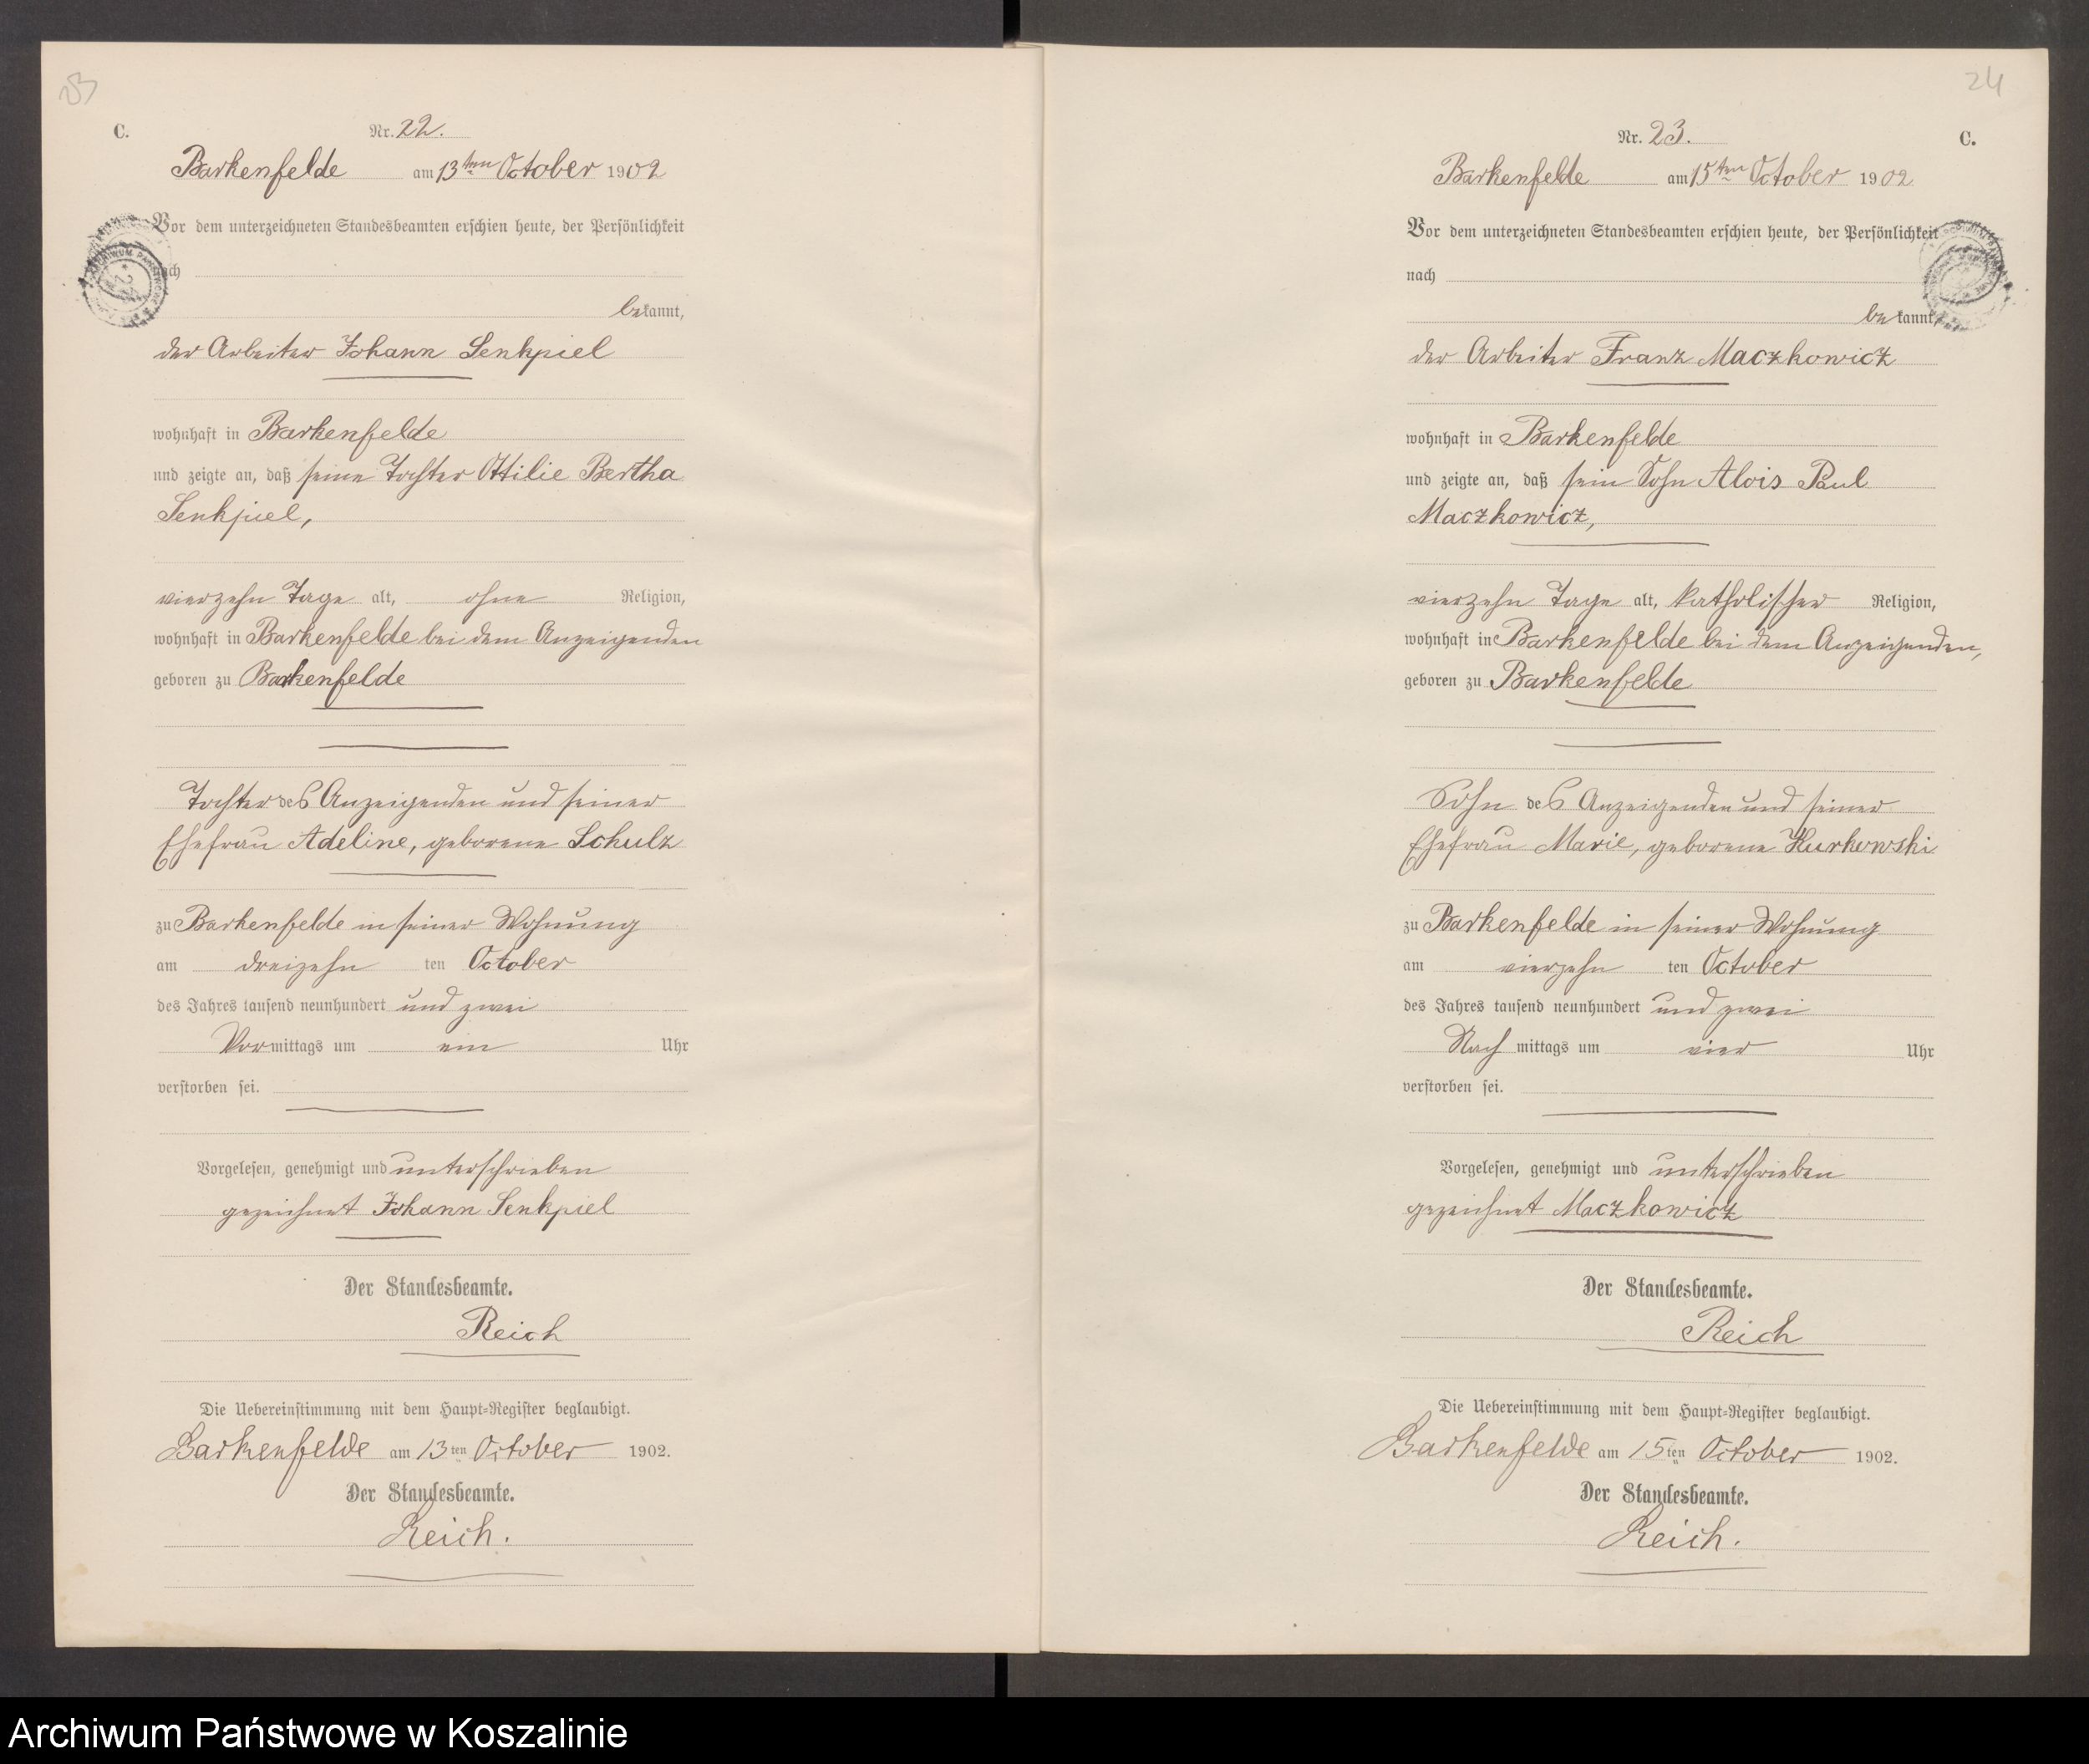 23
C.
Nr. 22.
Barkenfelde am 13ten October 1902
Vor dem unterzeichneten Standesbeamten erschien heute, der Persönlichkeit
nach
bekannt,
der Arbeiter Johann Senkpiel
wohnhaft in Barkenfelde
und zeigte an, daß seine Tochter Ottilie Bertha
Senkpiel,
vierzehn Tage alt, ohne Religion,
wohnhaft in Barkenfelde bei dem Anzeigenden
geboren zu Barkenfelde
Tochter des Anzeigenden und seiner
Ehefrau Adeline, geborene Schulz
zu Barkenfelde in seiner Wohnung
am dreizehn ten October
des Jahres tausend neunhundert und zwei
Vormittags um ein Uhr
verstorben sei.
Vorgelesen, genehmigt und unterschrieben
gezeichnet Johann Senkpiel
Der Standesbeamte.
Reich
Die Uebereinstimmung mit dem Haupt-Register beglaubigt.
Barkenfelde am 13ten October 1902.
Der Standesbeamte.
Reich.
24
Nr. 23.
C.
Barkenfelde am 15ten October 1902
Vor dem unterzeichneten Standesbeamten erschien heute, der Persönlichkeit
nach
bekannt,
der Arbeiter Franz Maczkowicz
wohnhaft in Barkenfelde
und zeigte an, daß sein Sohn Alois Paul
Maczkowicz,
vierzehn Tage alt, katholischer Religion,
wohnhaft in Barkenfelde bei dem Anzeigenden,
geboren zu Barkenfelde
Sohn des Anzeigenden und seiner
Ehefrau Marie, geborene Kurkowski
zu Barkenfelde in seiner Wohnung
am vierzehn ten October
des Jahres tausend neunhundert und zwei
Nach mittags um vier Uhr
verstorben sei.
Vorgelesen, genehmigt und unterschrieben
gezeichnet Maczkowicz
Der Standesbeamte.
Reich
Die Uebereinstimmung mit dem Haupt-Register beglaubigt.
Barkenfelde am 15ten October 1902.
Der Standesbeamte.
Reich.
Archiwum Państwowe w Koszalinie